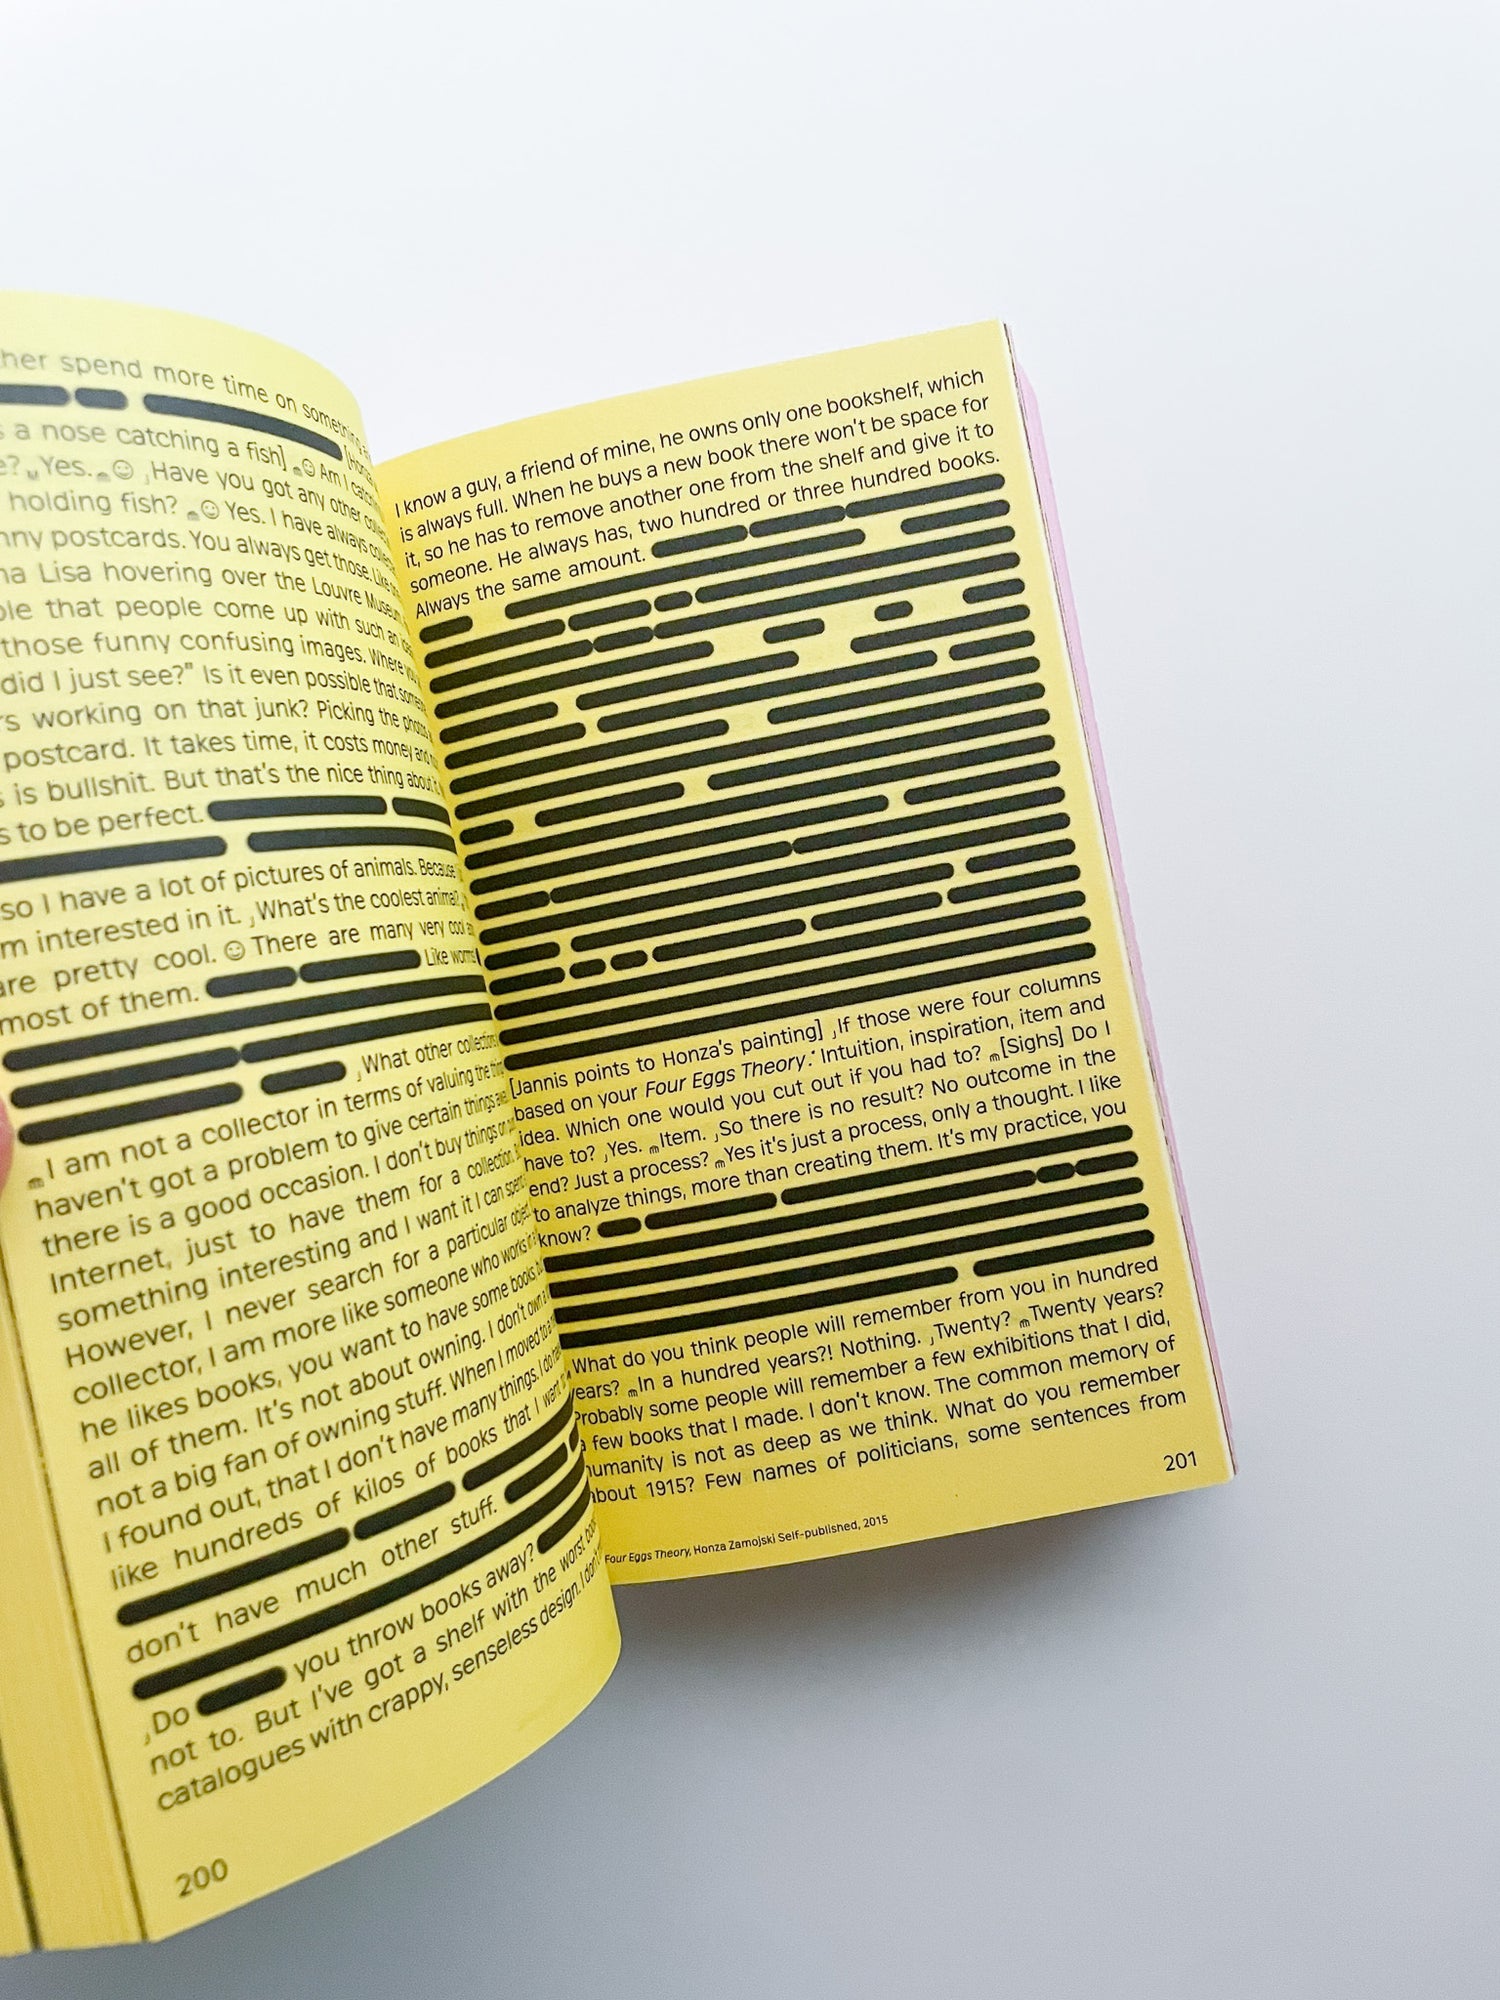 her spend more time on something
s a nose catching a fish] ☺ Am I
e? Yes. ☺ Have you got any other
holding fish? ☺ Yes. I have always
nny postcards. You always get those. Like
na Lisa hovering over the Louvre Museum
ple that people come up with such an
those funny confusing images. Where
did I just see?" Is it even possible that
rs working on that junk? Picking the
postcard. It takes time, it costs money
s is bullshit. But that's the nice thing about
s to be perfect.
so I have a lot of pictures of animals. Because
m interested in it. What's the coolest animal?
are pretty cool. ☺ There are many very cool
most of them. Like worms
What other
I am not a collector in terms of valuing the
haven't got a problem to give certain things
there is a good occasion. I don't buy things
Internet, just to have them for a collection.
something interesting and I want it I can
However, I never search for a particular
collector, I am more like someone who works
he likes books, you want to have some books,
all of them. It's not about owning. I don't own
not a big fan of owning stuff. When I moved to
I found out, that I don't have many things. I do
like hundreds of kilos of books that I want
don't have much other stuff.
Do you throw books away?
not to. But I've got a shelf with the worst
catalogues with crappy, senseless design. I
200
I know a guy, a friend of mine, he owns only one bookshelf, which
is always full. When he buys a new book there won't be space for
it, so he has to remove another one from the shelf and give it to
someone. He always has, two hundred or three hundred books.
Always the same amount.
[Jannis points to Honza's painting] ‚If those were four columns
based on your Four Eggs Theory:* Intuition, inspiration, item and
idea. Which one would you cut out if you had to? [Sighs] Do I
have to? ‚Yes. Item. ‚So there is no result? No outcome in the
end? Just a process? Yes it's just a process, only a thought. I like
to analyze things, more than creating them. It's my practice, you
know?
What do you think people will remember from you in hundred
years? In a hundred years?! Nothing. ‚Twenty? Twenty years?
Probably some people will remember a few exhibitions that I did,
a few books that I made. I don't know. The common memory of
humanity is not as deep as we think. What do you remember
about 1915? Few names of politicians, some sentences from
201
Four Eggs Theory, Honza Zamojski Self-published, 2015